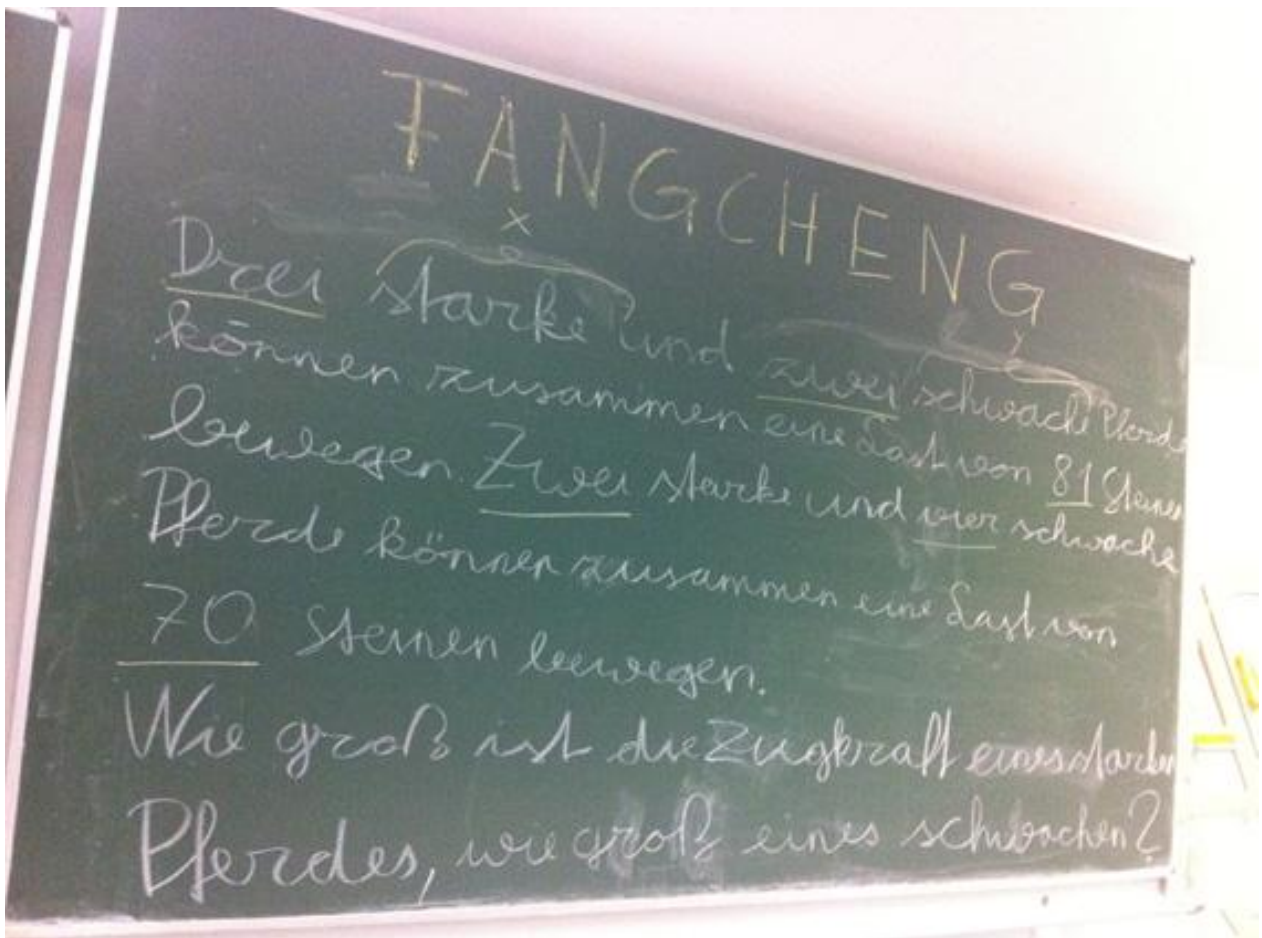 FANGCHENG
x
y
Drei starke und zwei schwache Pferde
können zusammen eine Last von 81 Steinen
bewegen. Zwei starke und vier schwache
Pferde können zusammen eine Last von
70 Steinen bewegen.
Wie groß ist die Zugkraft eines starken
Pferdes, wie groß eines schwachen?